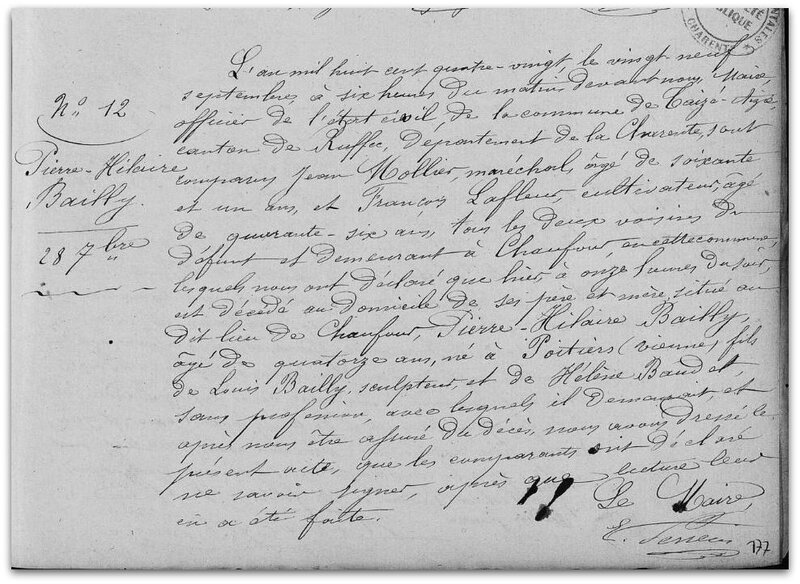 L'an mil huit cent quatre-vingt, le vingt neuf
septembre, à six heures du matin devant nous Maire
officier de l'état civil de la commune de Taizé-Aizie
canton de Ruffec, département de la Charente, sont
comparus Jean Mollier, maréchal, âgé de soixante
et un ans, et François Lafleur, cultivateur, âgé
de quarante-six ans, tous les deux voisins du
défunt et demeurant à Chaufour, en cette commune,
lesquels nous ont déclaré que hier, à onze heures du soir,
est décédé au domicile de ses père et mère, situé au
dit lieu de Chaufour, Pierre-Hilaire Bailly,
âgé de quatorze ans, né à Poitiers (vienne) fils
de Louis Bailly, sculpteur et de Hélène Baudet,
sans profession, avec lesquels il demeurait, et
après nous être assuré du décès, nous avons dressé le
présent acte, que les comparants ont déclaré
ne savoir signer, après que lecture leur
en a été faite.
Le Maire,
No 12
Pierre-Hilaire
Bailly.
28 7bre
CHARENTE
177